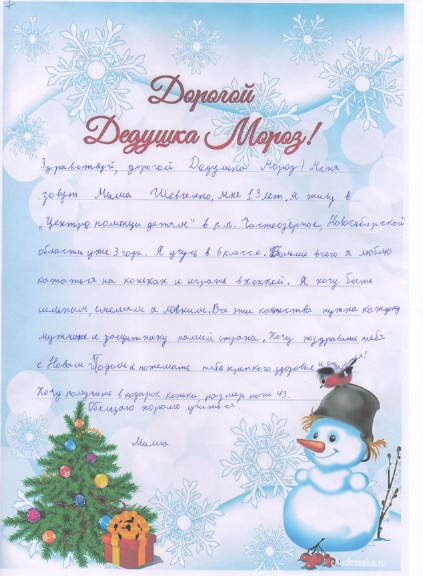 Дорогой
Дедушка Мороз!
Здравствуй, дорогой Дедушка Мороз! Меня
зовут Миша Шевченко, мне 13 лет. Я живу в
"Центре помощи детям" в р.п. Чистоозёрное, Новосибирской
области уже 3 года. Я учусь в 6 классе. Больше всего я люблю
кататься на коньках и играть в хоккей. Я хочу быть
сильным, смелым и ловким. Все эти качества нужны каждому
мужчине и защитнику нашей страны. Хочу поздравить тебя
с Новым Годом и пожелать тебе крепкого здоровья и
Хочу получить в подарок коньки, размер ноги 43.
Обещаю хорошо учиться.
Миша